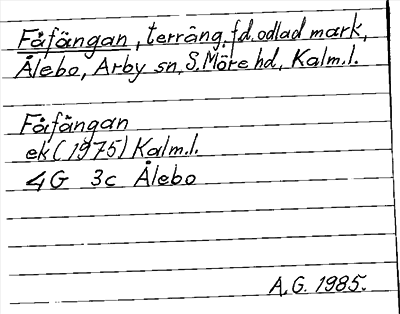 Fåfängan, terräng, f.d. odlad mark,
Ålebo, Arby sn, S. Möre hd, Kalm. l.
Fåfängan
ek (1975) Kalm. l.
4G 3c Ålebo
A.G. 1985.